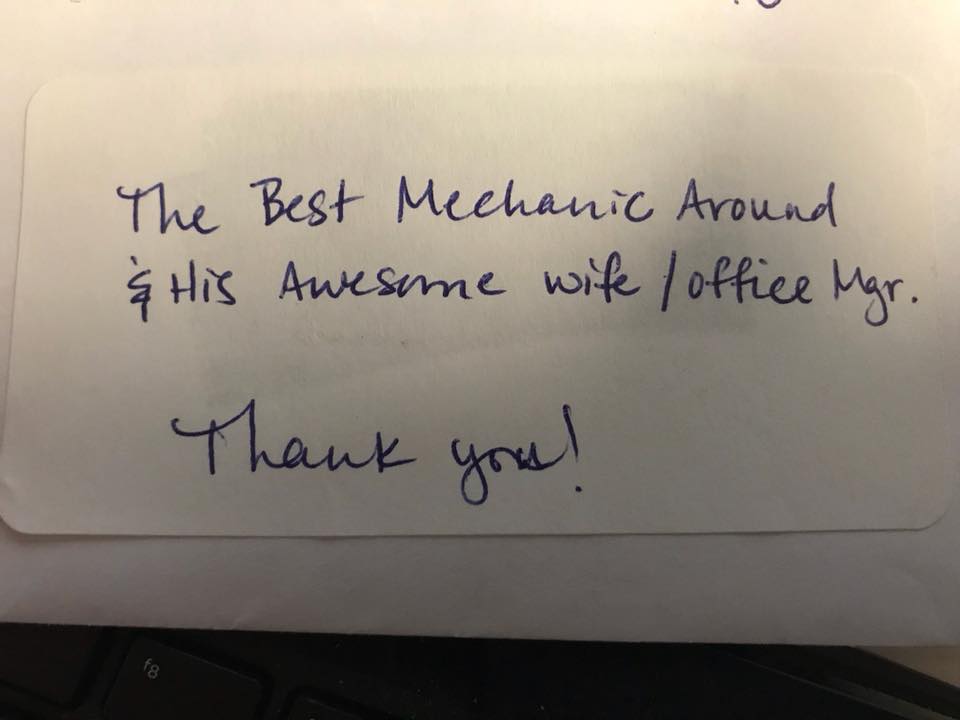 The Best Mechanic Around
& His Awesome wife / office Mgr.
Thank you!
f8